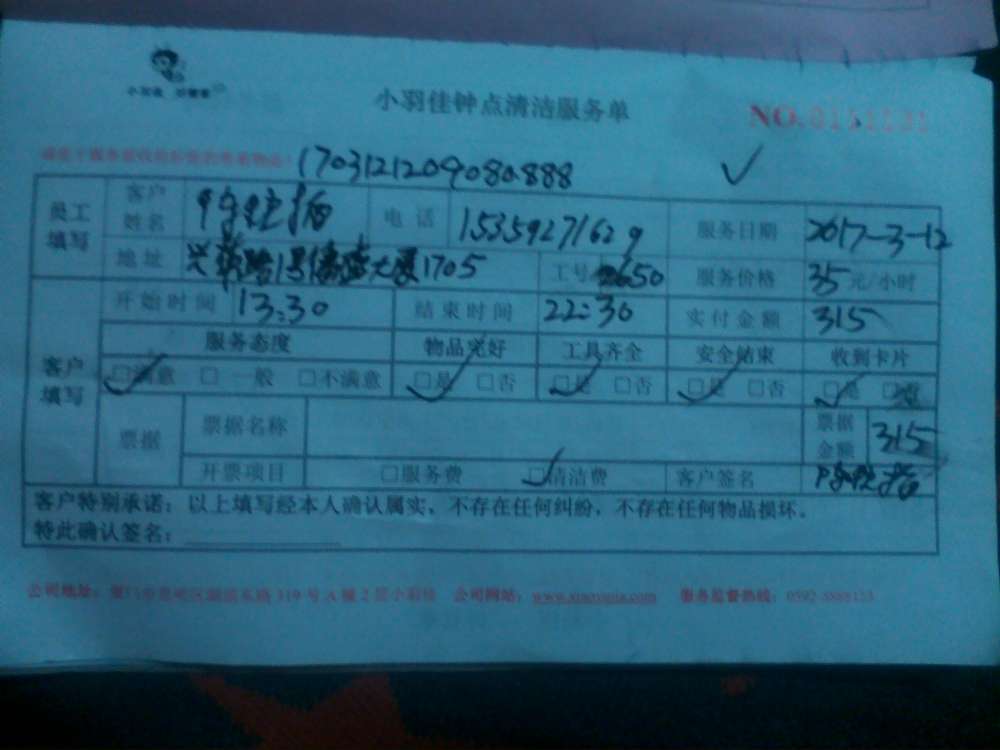 小羽佳钟点清洁服务单
NO.
1703121209080888
员工填写 客户姓名 电话 15359271629 服务日期 2017-3-12
地址 1号 大厦1705 工号 2650 服务价格 35元/小时
客户填写 开始时间 13:30 结束时间 22:30 实付金额 315
服务态度 物品完好 工具齐全 安全结束 收到卡片
□满意 □一般 □不满意 □是 □否 □是 □否 □是 □否 □是 □否
票据 票据名称 票据金额 315
开票项目 □服务费 □清洁费 客户签名
客户特别承诺：以上填写经本人确认属实，不存在任何纠纷，不存在任何物品损坏。
特此确认签名：
公司地址： 319号A幢2层小羽佳 公司网站： 服务监督热线：